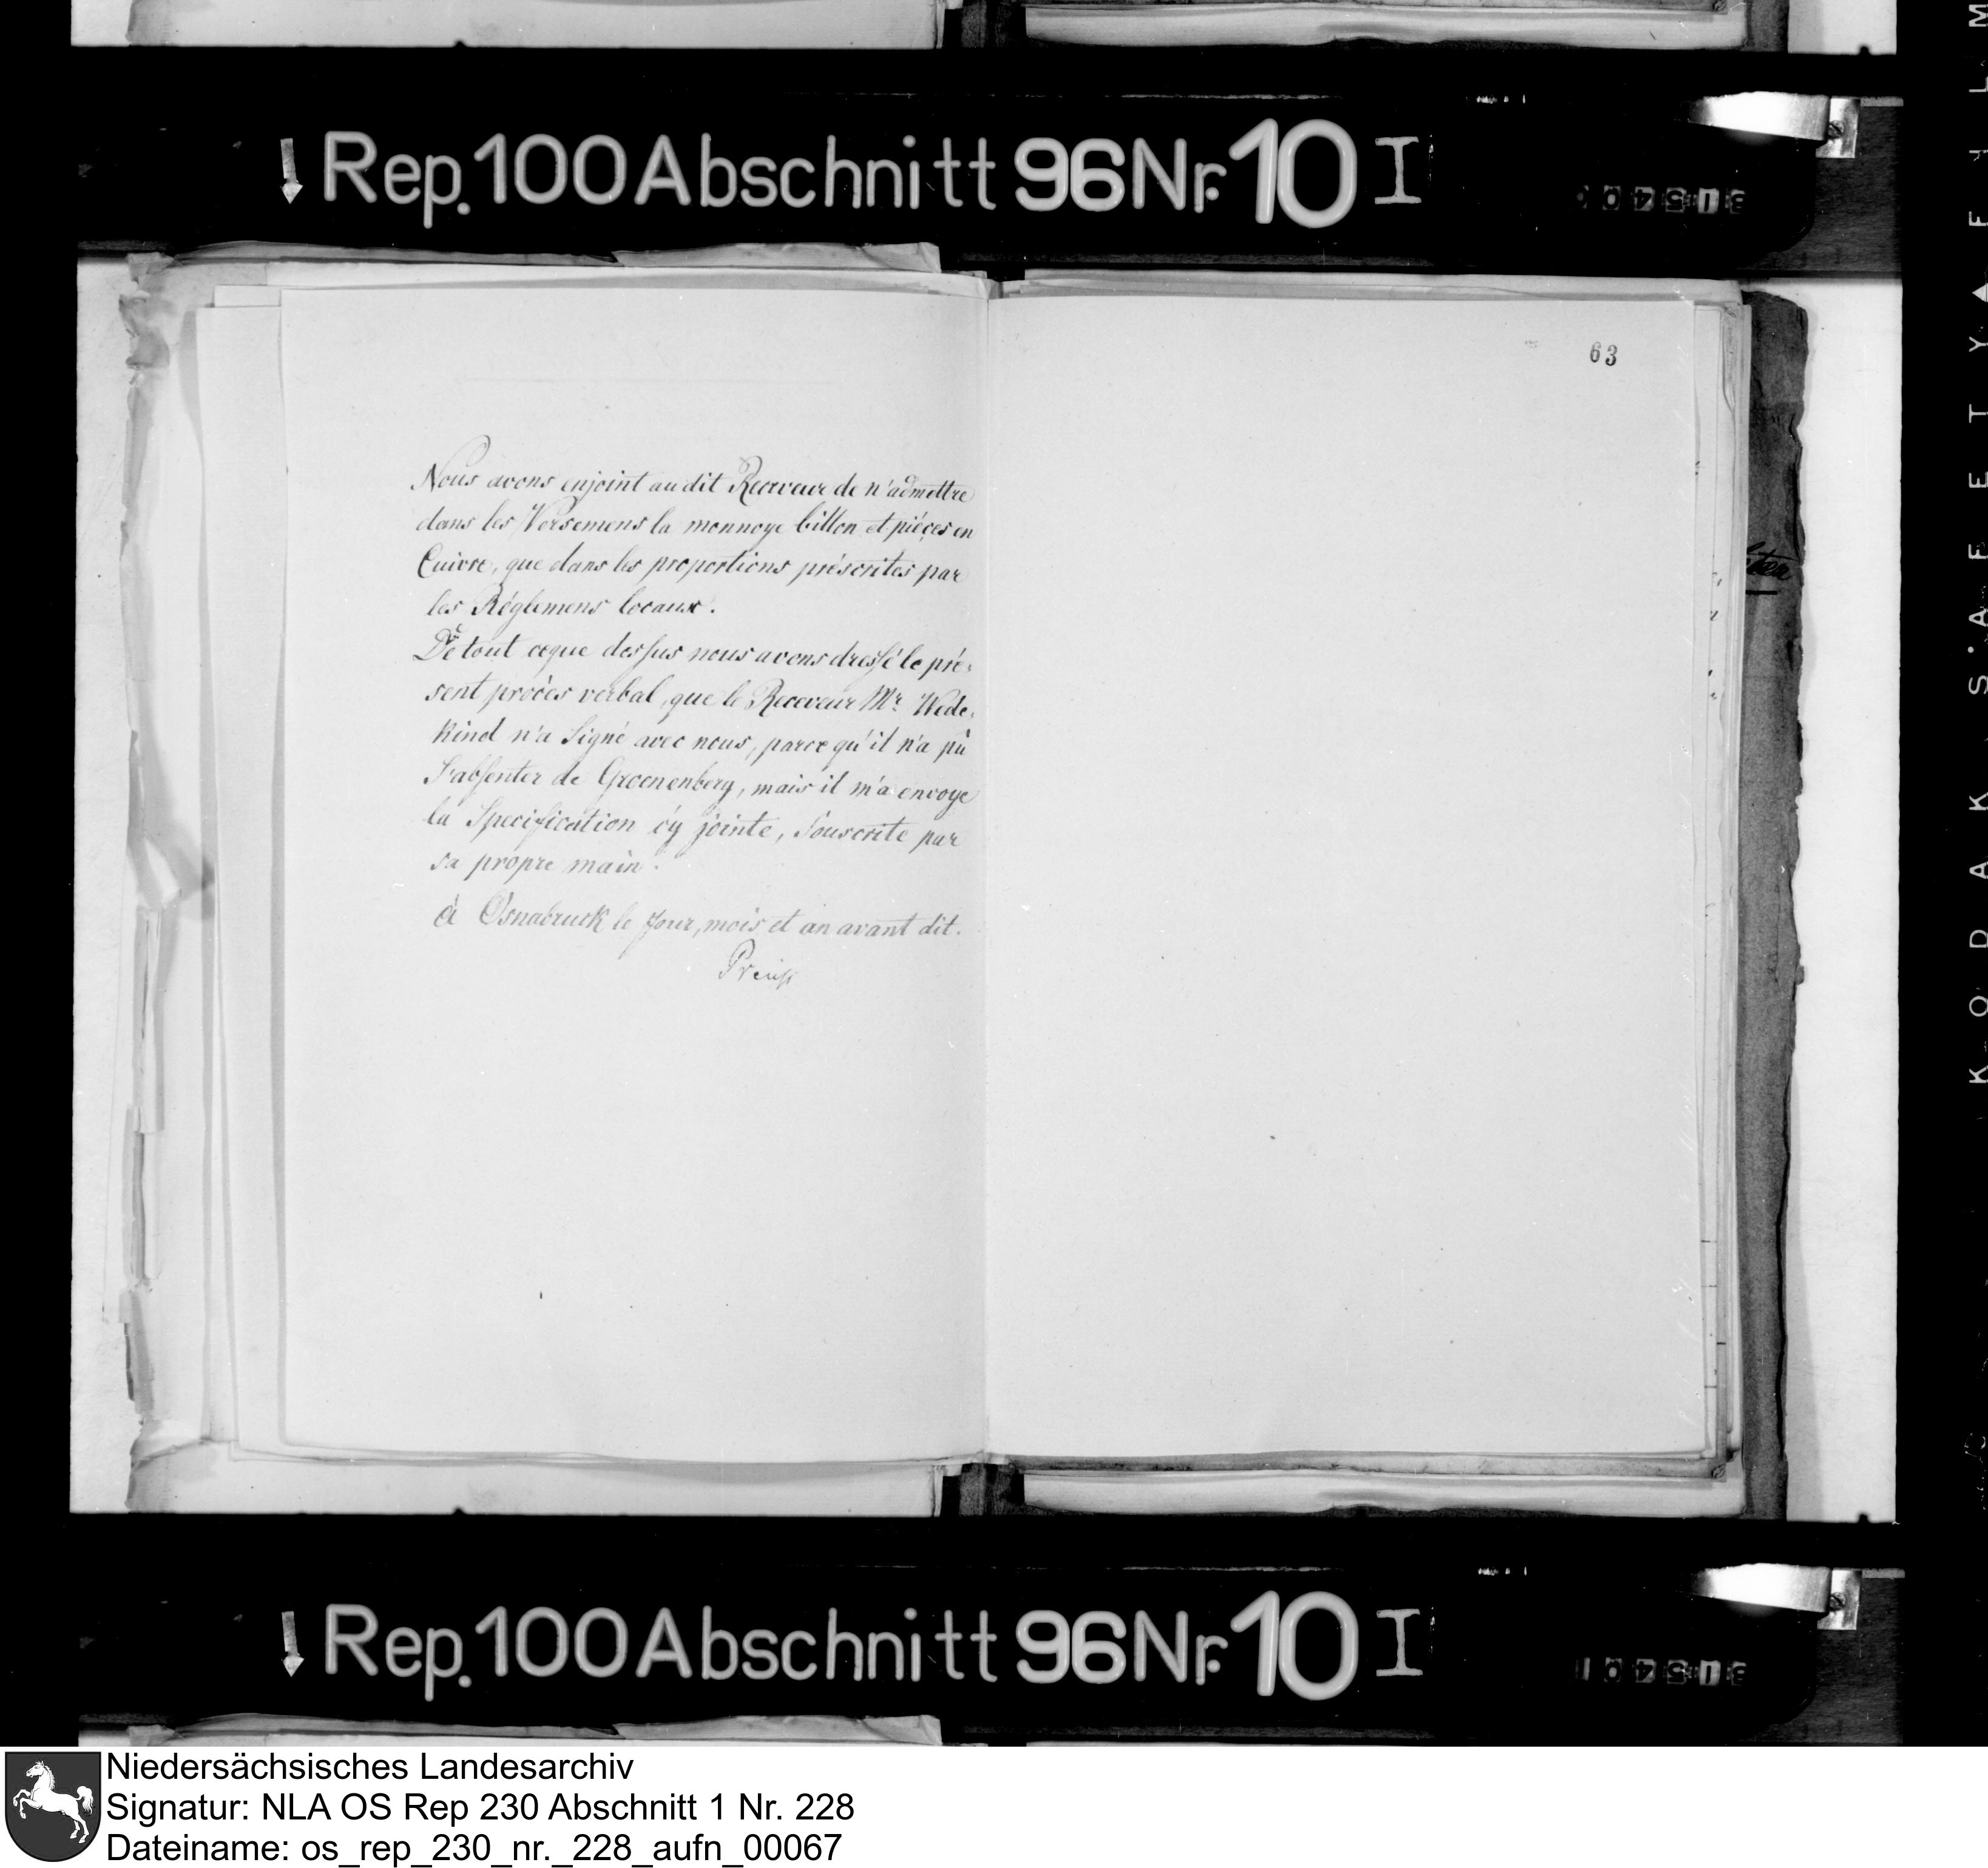 Rep. 100 Abschnitt 96 Nr. 10 I
63
Nous avons enjoint au dit Receveur de n'admettre
dans les Versemens la monnoye billon et piéçes en
Cuivre, que dans les proportions préscrites par
les Réglemens locaux.
De tout ceque dessus nous avons dressé le pré-
sent procès verbal, que le Receveur Mr. Wede-
kind n'a Signé avec nous, parce qu'il n'a pû
S'absenter de Groenenberg, mais il m'a envoye
la Specification cy jointe, Souscrite par
sa propre main.
à Osnabruck le Jour, mois et an avant dit.
Preuß
Rep. 100 Abschnitt 96 Nr. 10 I
KODAK SAFETY
Niedersächsisches Landesarchiv
Signatur: NLA OS Rep 230 Abschnitt 1 Nr. 228
Dateiname: os_rep_230_nr._228_aufn_00067